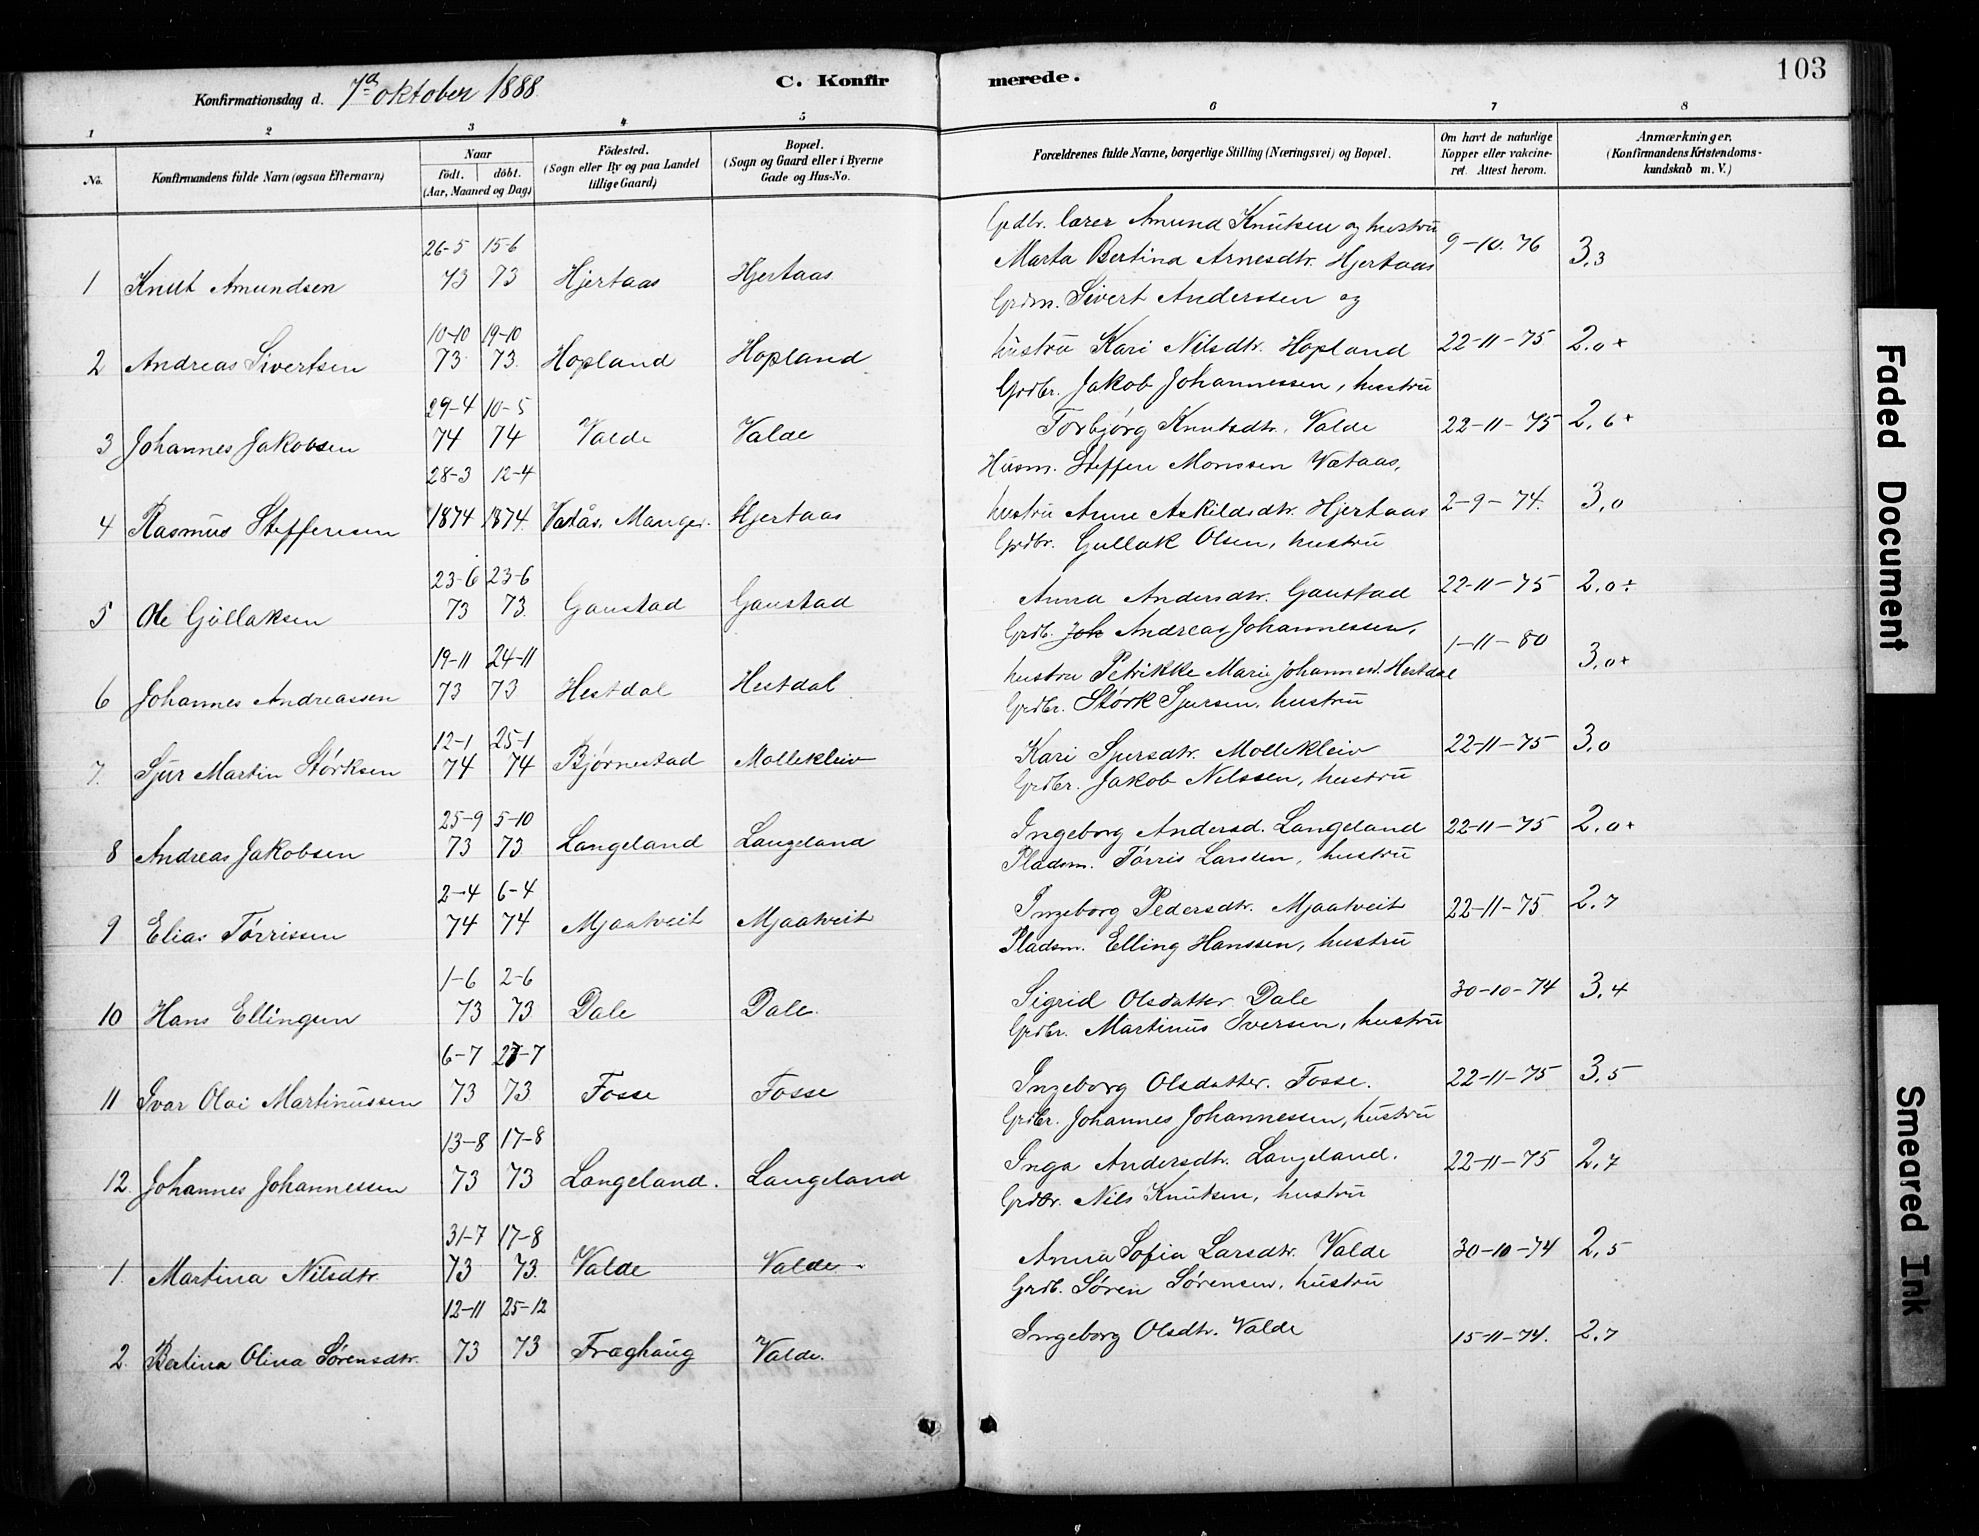 103
Konfirmationsdag d. 7de oktober 1888.
C. Konfirmerede.
1 2 3 4 5 6 7 8
No.
Konfirmandens fulde Navn (ogsaa Efternavn)
Naar
födt. döbt.
(Aar, Maaned og Dag)
Födested.
(Sogn eller By og paa Landet
tillige Gaard)
Bopæl.
(Sogn og Gaard eller i Byerne
Gade og Hus-No.
Forældrenes fulde Navne, borgerlige Stilling (Næringsvei) og Bopæl.
Om havt de naturlige
Kopper eller vakcine-
ret. Attest herom.
Anmærkninger,
(Konfirmandens Kristendoms-
kundskab m. V.)
26-5 15-6 Grdbr. lærer Amund Knutsen og hustru
1 Knut Amundsen 73 73 Hjertaas Hjertaas Marta Bertina Arnesdtr. Hjertaas 9-10.76 3,3
10-10 19-10 Grdm. Sivert Anderssen og
2 Andreas Sivertsen 73 73 Hopland Hopland hustru Kari Nilsdtr. Hopland 22-11-75 2,0+
29-4 10-5 Grdbr. Jakob Johannessen, hustru
3 Johannes Jakobsen 74 74 Valde Valde Torbjørg Knutsdtr. Valde 22-11-75 2,6+
28-3 12-4 Husm. Steffen Monssen Vætaas,
4 Rasmus Steffensen 1874 1874 Vætås. Manger. Hjertaas hustru Anne Askildsdtr. Hjertaas 2-9-74. 3,0
23-6 23-6 Grdbr. Gullak Olsen, hustru
5 Ole Gullaksen 73 73 Gaustad Gaustad Anna Andersdtr. Gaustad 22-11-75 2,0÷
19-11 24-11 Grdb. Joh Andreas Johannessen,
6 Johannes Andreassen 73 73 Hestdal Hestdal hustru Petrikke Marie Johannesd. Hestdal 1-11-80 3,0+
12-1 25-1 Grdbr. Størk Sjursen, hustru
7. Sjur Martin Størksen 74 74 Bjørnestad Mollekleiv Kari Sjursdtr. Mollekleiv 22-11-75 3,0
25-9 5-10 Grdbr. Jakob Nilssen, hustru
8 Andreas Jakobsen 73 73 Langeland Langeland Ingeborg Andersd. Langeland 22-11-75 2,0+
2-4 6-4 Pladsm. Tørris Larssen, hustru
9 Elias Tørrissen 74 74 Mjaatveit Mjaatveit Ingeborg Pedersdtr. Mjaatveit 22-11-75 2,7
1-6 2-6 Pladsm. Elling Hanssen, hustru
10 Hans Ellingsen 73 73 Dale Dale. Sigrid Olsdatter Dale 30-10-74 3,4
6-7 27-7 Grdbr. Martinus Iversen, hustru
11 Ivar Olai Martinussen 73 73 Fosse Fosse Ingeborg Olsdatter. Fosse. 22-11-75 3,5
13-8 17-8 Grdbr. Johannes Johannessen, hustru
12. Johannes Johannessen 73 73 Langeland. Langeland Inga Andersdtr. Langeland. 22-11-75 2,7
31-7 17-8 Grdbr. Nils Knutsen, hustru
1. Martina Nilsdtr. 73 73. Valde Valde. Anna Sofia Larsdtr. Valde 30-10-74 2,5
12-11 25-12 Grdb. Søren Sørensen, hustru
2. Bertina Olina Sørensdtr. 73 73 Fræghaug Valde. Ingeborg Olsdtr. Valde 15-11-74. 2,7
Faded Document
Smeared Ink